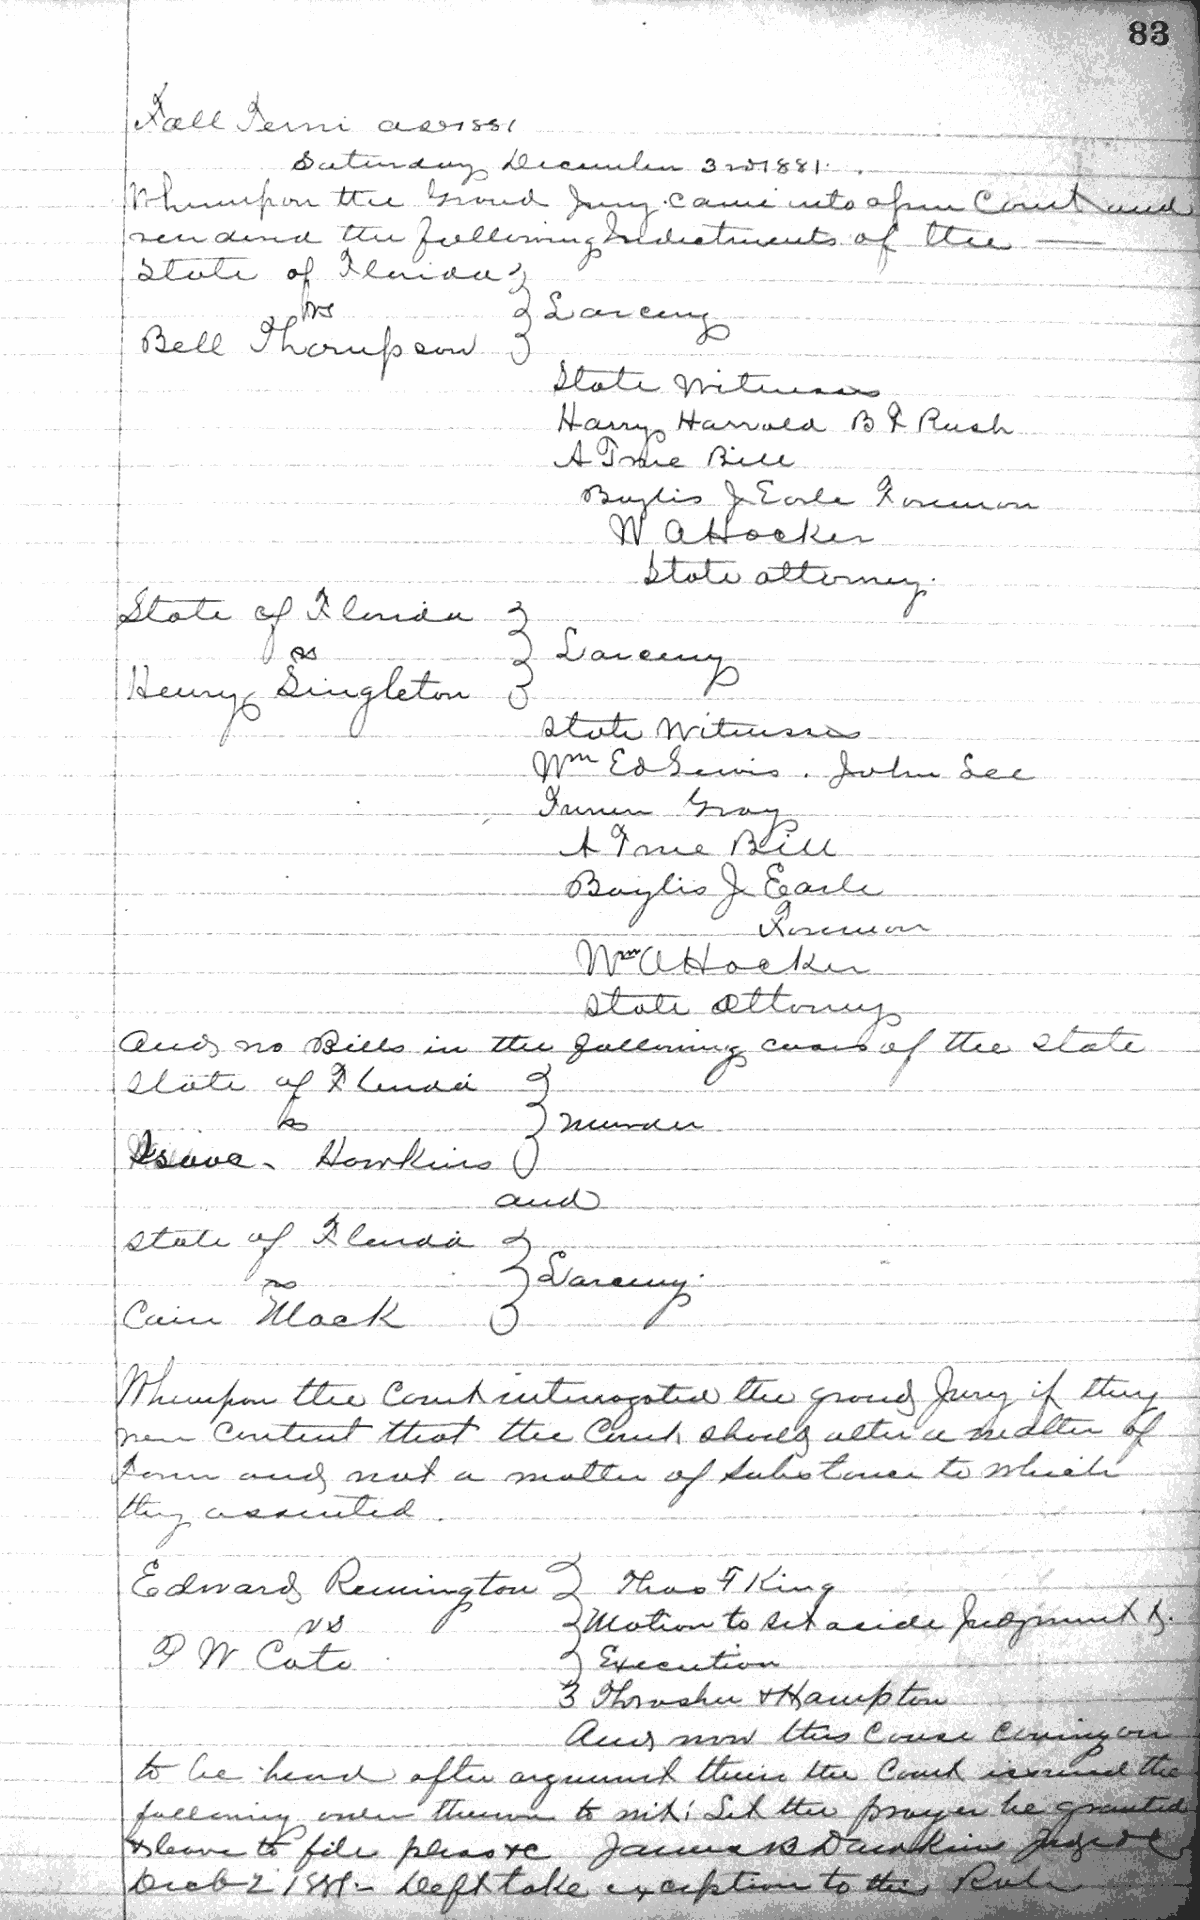 83
Fall Term AD 1881
Saturday December 3rd 1881.
Whereupon the Grand Jury came into open Court and
rendered the following Indictments of the —
State of Florida }
vs } Larceny
Bell Thompson }
State Witnesses
Harry Harrold B F Rush
A True Bill
Baylis J Earle Foreman
W A Hocker
State attorney.
State of Florida }
vs } Larceny
Henry Singleton }
State Witnesses
Wm Ed Lewis. John Lee
Gray
A True Bill
Baylis J Earle
Foreman
Wm A Hocker
State Attorney
And no Bills in the following cases of the State
State of Florida }
vs } Murder
Hawkins }
and
State of Florida }
vs } Larceny.
Cain Mack }
Whereupon the Court interrogated the grand Jury if they
were content that the Court should alter a matter of
Form and not a matter of Substance to which
they assented.
Edward Remington } Thos F King
vs } Motion to set aside Judgment &.
P W Cato } Execution
} Thrasher & Hampton
And now this Cause coming on
to be heard after argument therein the Court the
following order thereon to wit: Let the prayer be granted
& leave to file pleas &c James B Dawkins Judge &c
Decb 2 1881 - Deft take exception to this Rule